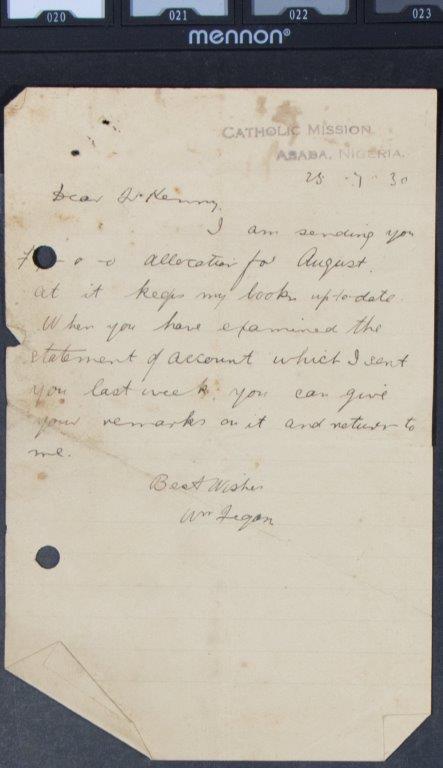 020 021 022 023
mennon®
CATHOLIC MISSION
ASABA, NIGERIA.
25 . 7 . 30
Dear Dr Kenny,
I am sending you
- 0 - 0 allocation for August.
at it keeps my books up-to-date.
When you have examined the
statement of account which I sent
you last week, you can give
your remarks on it and return to
me.
Best Wishes
Wm Fegan